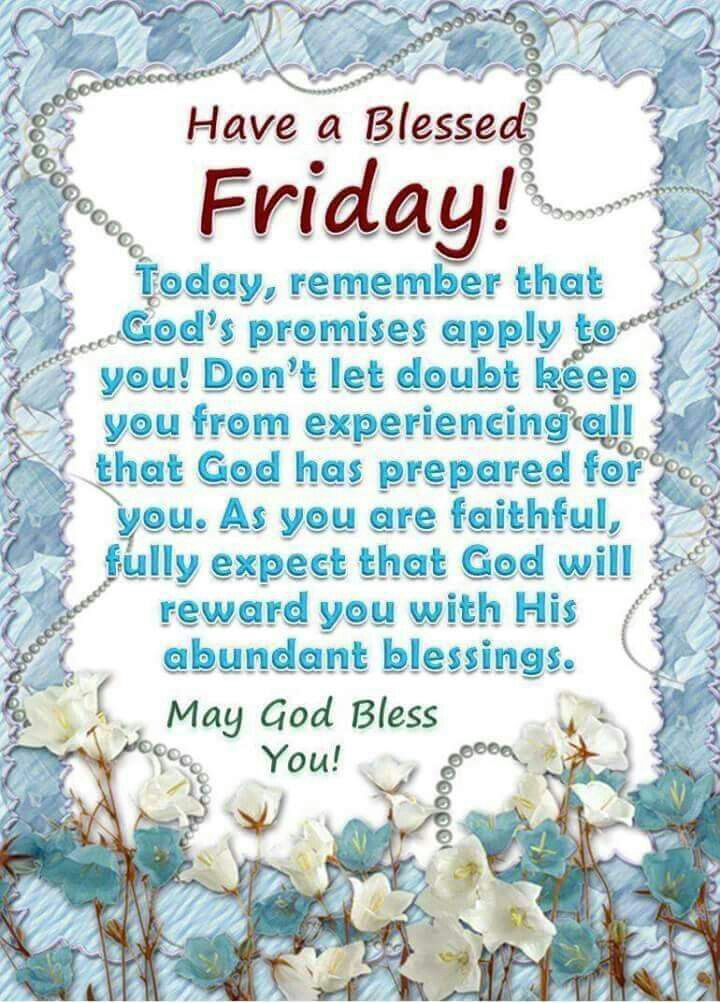 Have a Blessed
Friday!
Today, remember that
God's promises apply to
you! Don't let doubt keep
you from experiencing all
that God has prepared for
you. As you are faithful,
fully expect that God will
reward you with His
abundant blessings.
May God Bless
You!